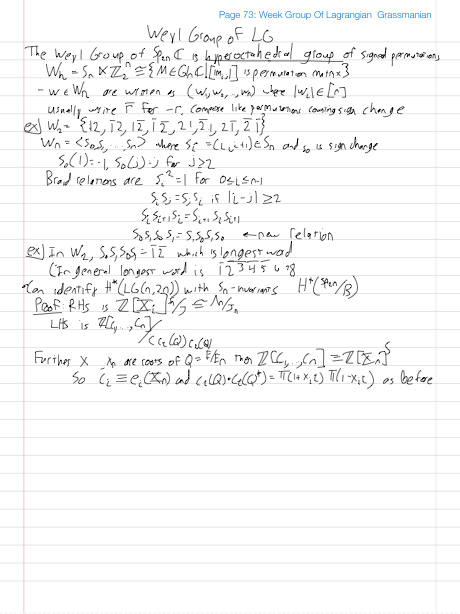 Page 73: Week Group Of Lagrangian Grassmanian
Weyl Group of LG
The Weyl Group of Sp₂ₙ ℂ is hyperoctahedral group of signed permutations
Wₙ = Sₙ ⋉ ℤ₂ⁿ ≅ {M ∈ GLₙ ℂ | [|mᵢⱼ|] is permutation matrix}
- w ∈ Wₙ are written as (w₁, w₂, .., wₙ) where |wᵢ| ∈ [n]
usually write r̄ for -r, compose like permutations counting sign change
ex) W₂ = {12, 1̄2, 12̄, 1̄2̄, 21, 2̄1, 21̄, 2̄1̄}
Wₙ = <s₀, s₁, ..., sₙ> where sᵢ = (i, i+1) ∈ Sₙ and s₀ is sign change
s₀(1) = -1, s₀(j) = j for j ≥ 2
Braid relations are sᵢ² = 1 for 0 ≤ i ≤ n-1
sᵢsⱼ = sⱼsᵢ if |i-j| ≥ 2
sᵢsᵢ₊₁sᵢ = sᵢ₊₁sᵢsᵢ₊₁
s₀s₁s₀s₁ = s₁s₀s₁s₀ ← new relation
ex) In W₂, s₀s₁s₀s₁ = 1̄2̄ which is longest word
(In general longest word is 1̄ 2̄ 3̄ 4̄ 5̄ 6̄ 7̄ 8̄
Can identify H*(LG(n,2n)) with Sₙ-invariants H*(Sp₂ₙ/B)
Proof: RHS is ℤ[Xₙ]ˢⁿ/J ≅ Λₙ/Jₙ
LHS is ℤ[c₁, .., cₙ]/(cₜ(Q)cₜ(Q*)
Further x₁ .. xₙ are roots of Q = E/Eₙ then ℤ[c₁, .., cₙ] ≅ ℤ[Xₙ]ˢ
So cᵢ ≡ eᵢ(Xₙ) and cₜ(Q)·cₜ(Q*) = Π(1+xᵢt) Π(1-xᵢt) as before